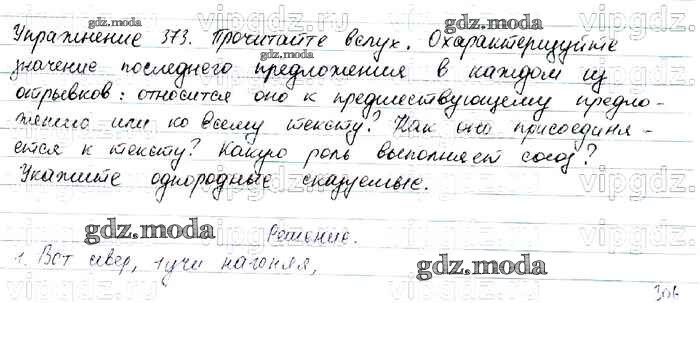 Упражнение 373. Прочитайте вслух. Охарактеризуйте
значение последнего предложения в каждом из
отрывков: относится оно к предшествующему предло-
жению или ко всему тексту? Как оно присоединя-
ется к тексту? Какую роль выполняет союз?
Укажите однородные сказуемые.
Решение.
1. Вот север, тучи нагоняя,
306
gdz.moda
gdz.moda
gdz.moda
gdz.moda
vipgdz.ru
vipgdz.ru
vipgdz.ru
vipgdz.ru